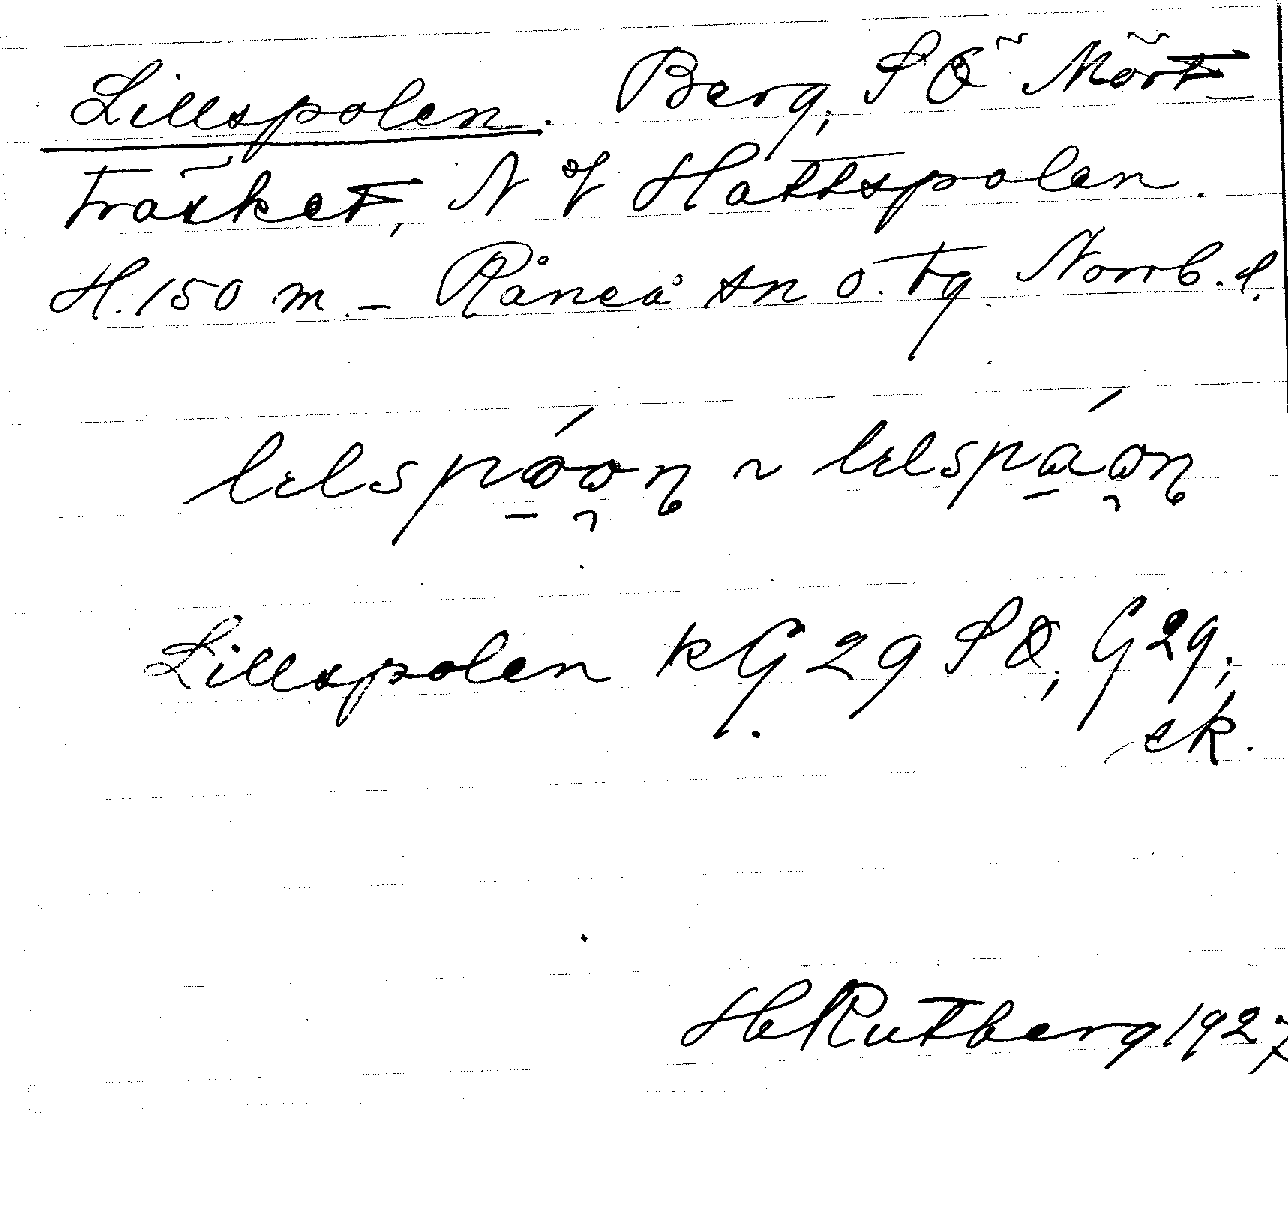 Lillspolen. Berg, SÖ Mört-
träsket, N of Hattspolen.
H. 150 m. - Råneå sn o. tg. Norrb. l.
Lillspolen kG 29 SO, G 29,
ek.
HRutberg 1927